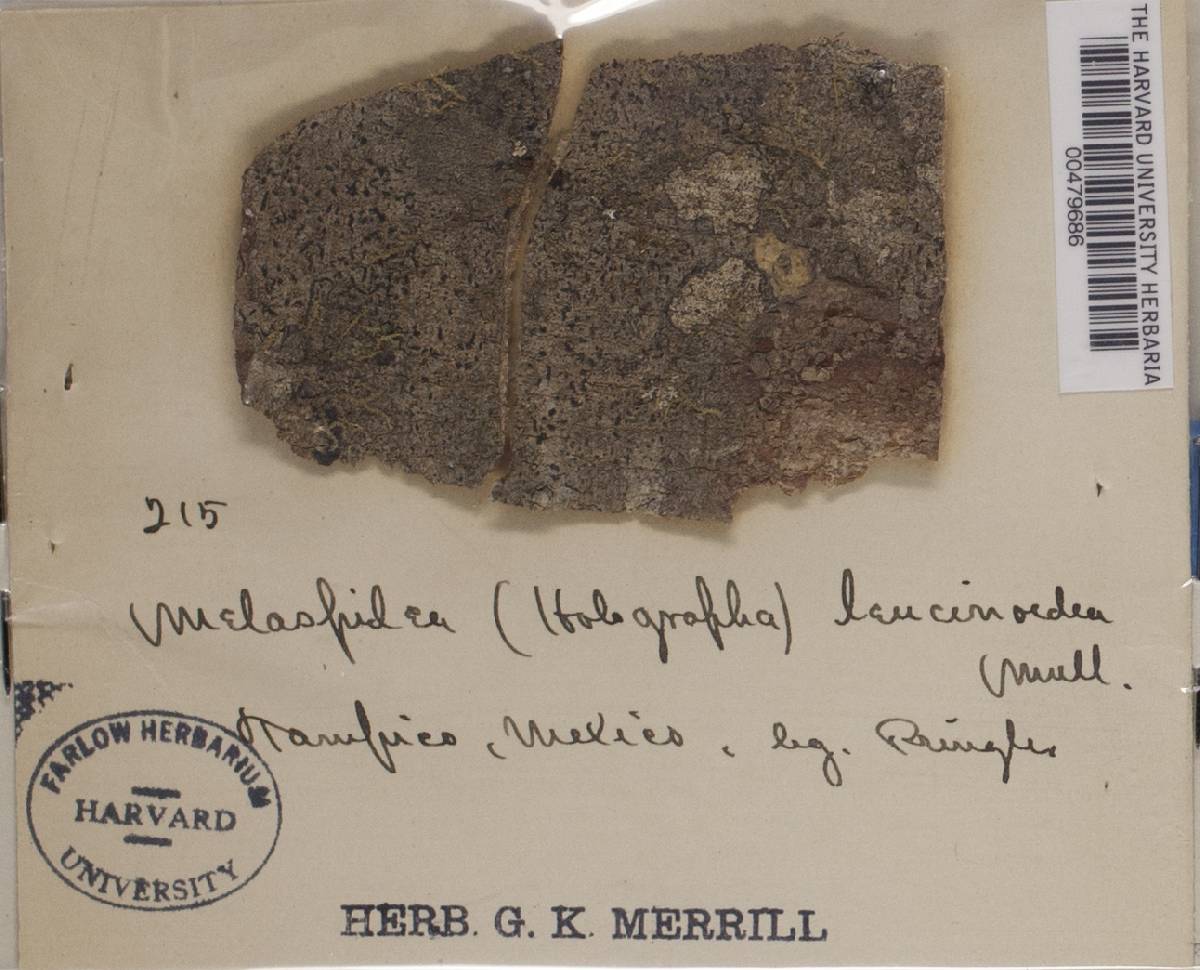 THE HARVARD UNIVERSITY HERBARIA
00479686
215
Melaspilea (Holographa) leucinoedea
Mull.
Tampico, Mexico, leg. Pringle
FARLOW HERBARIUM
HARVARD
UNIVERSITY
HERB. G. K. MERRILL